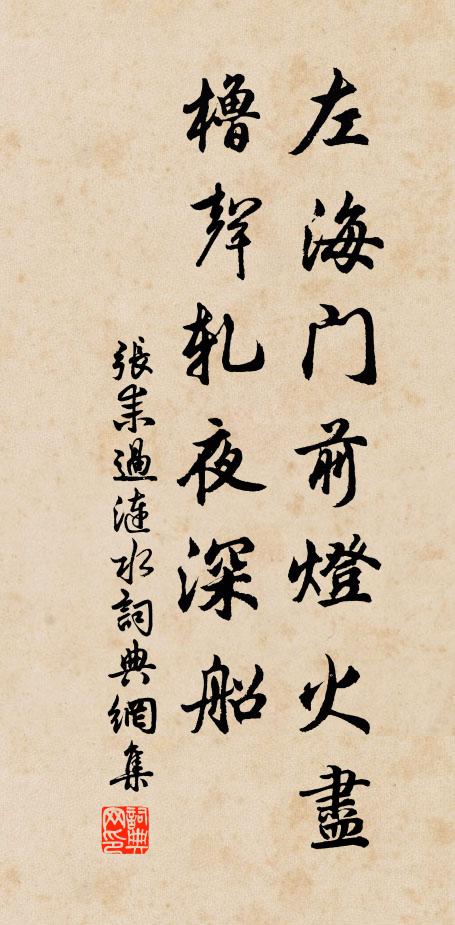 左海門前燈火盡
櫓聲軋夜深船
張耒過漣水詞典網集
詞典网印